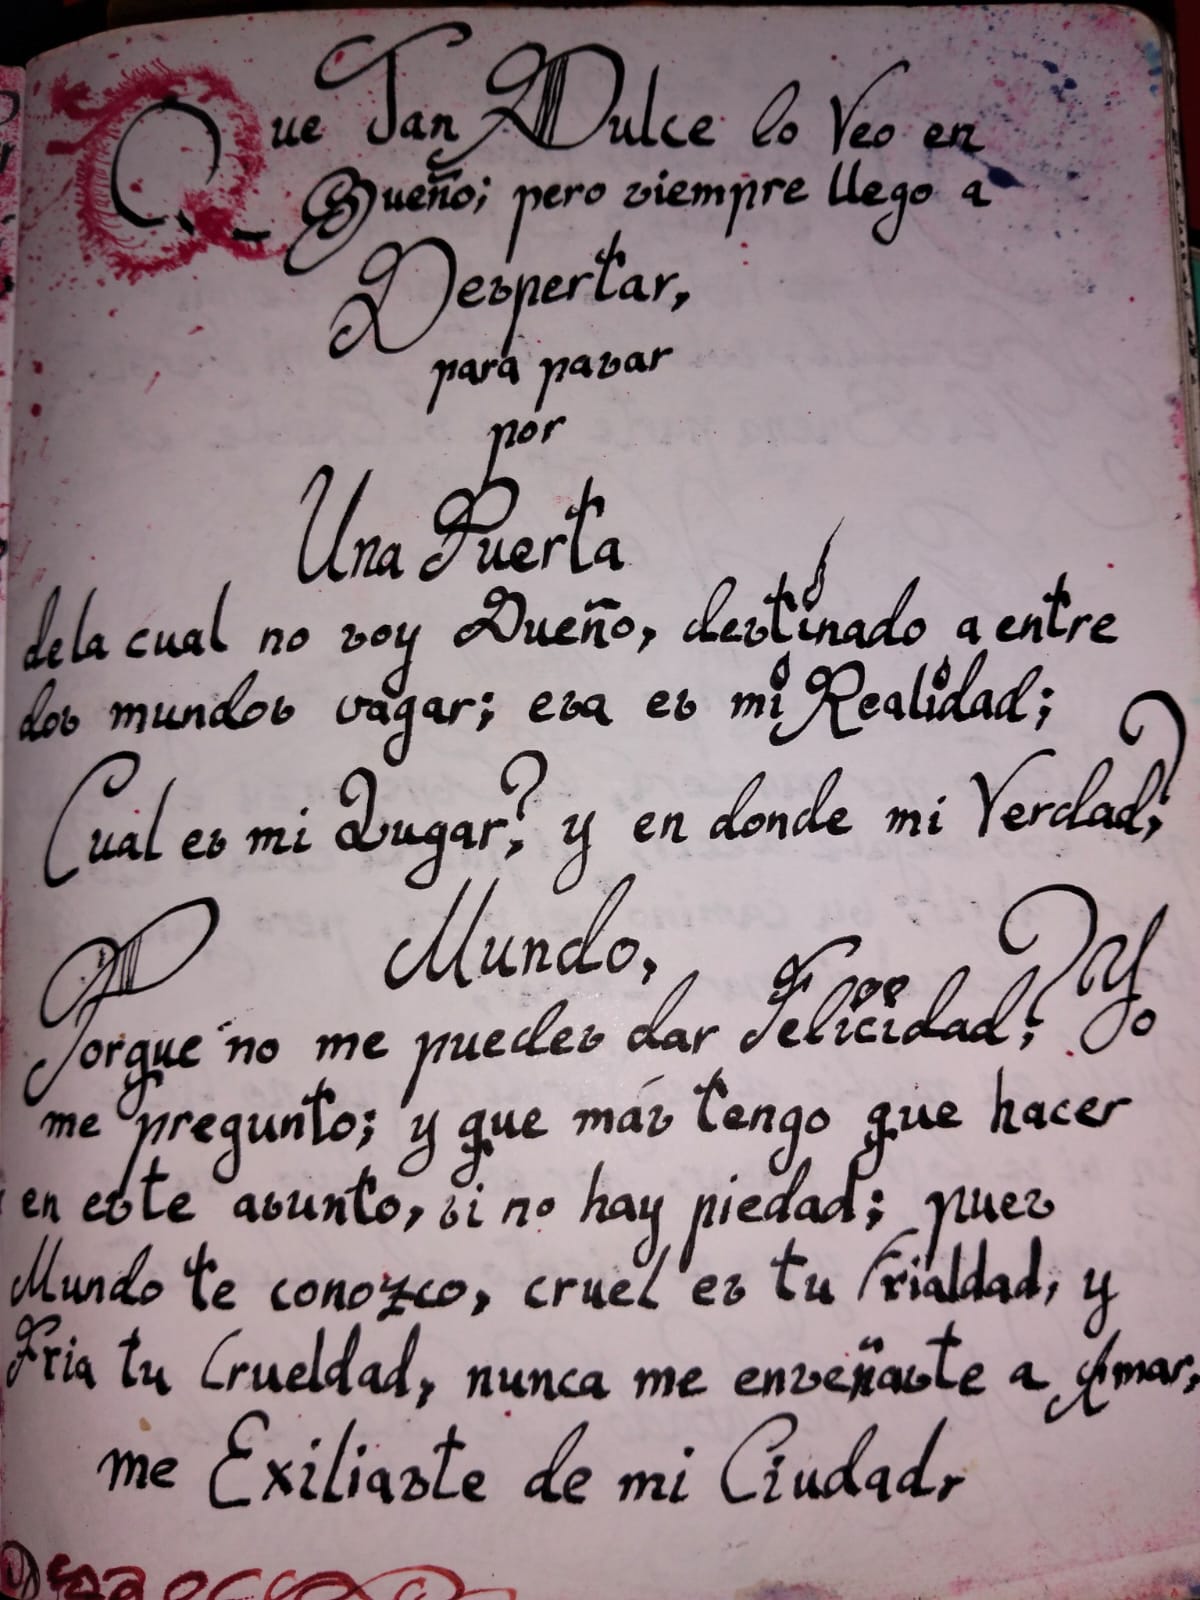 Que Tan Dulce lo Veo en
Sueño; pero siempre llego a
Despertar,
para pasar
por
Una Puerta
de la cual no soy Dueño, destinado a entre
dos mundos vagar; esa es mi Realidad;
Cual es mi Lugar? y en donde mi Verdad?
Mundo,
Porque no me puedes dar Felicidad? Yo
me pregunto; y que más tengo que hacer
en este asunto, si no hay piedad; pues
Mundo te conozco, cruel es tu Frialdad, y
Fria tu Crueldad, nunca me enseñaste a Amar,
me Exiliaste de mi Ciudad,